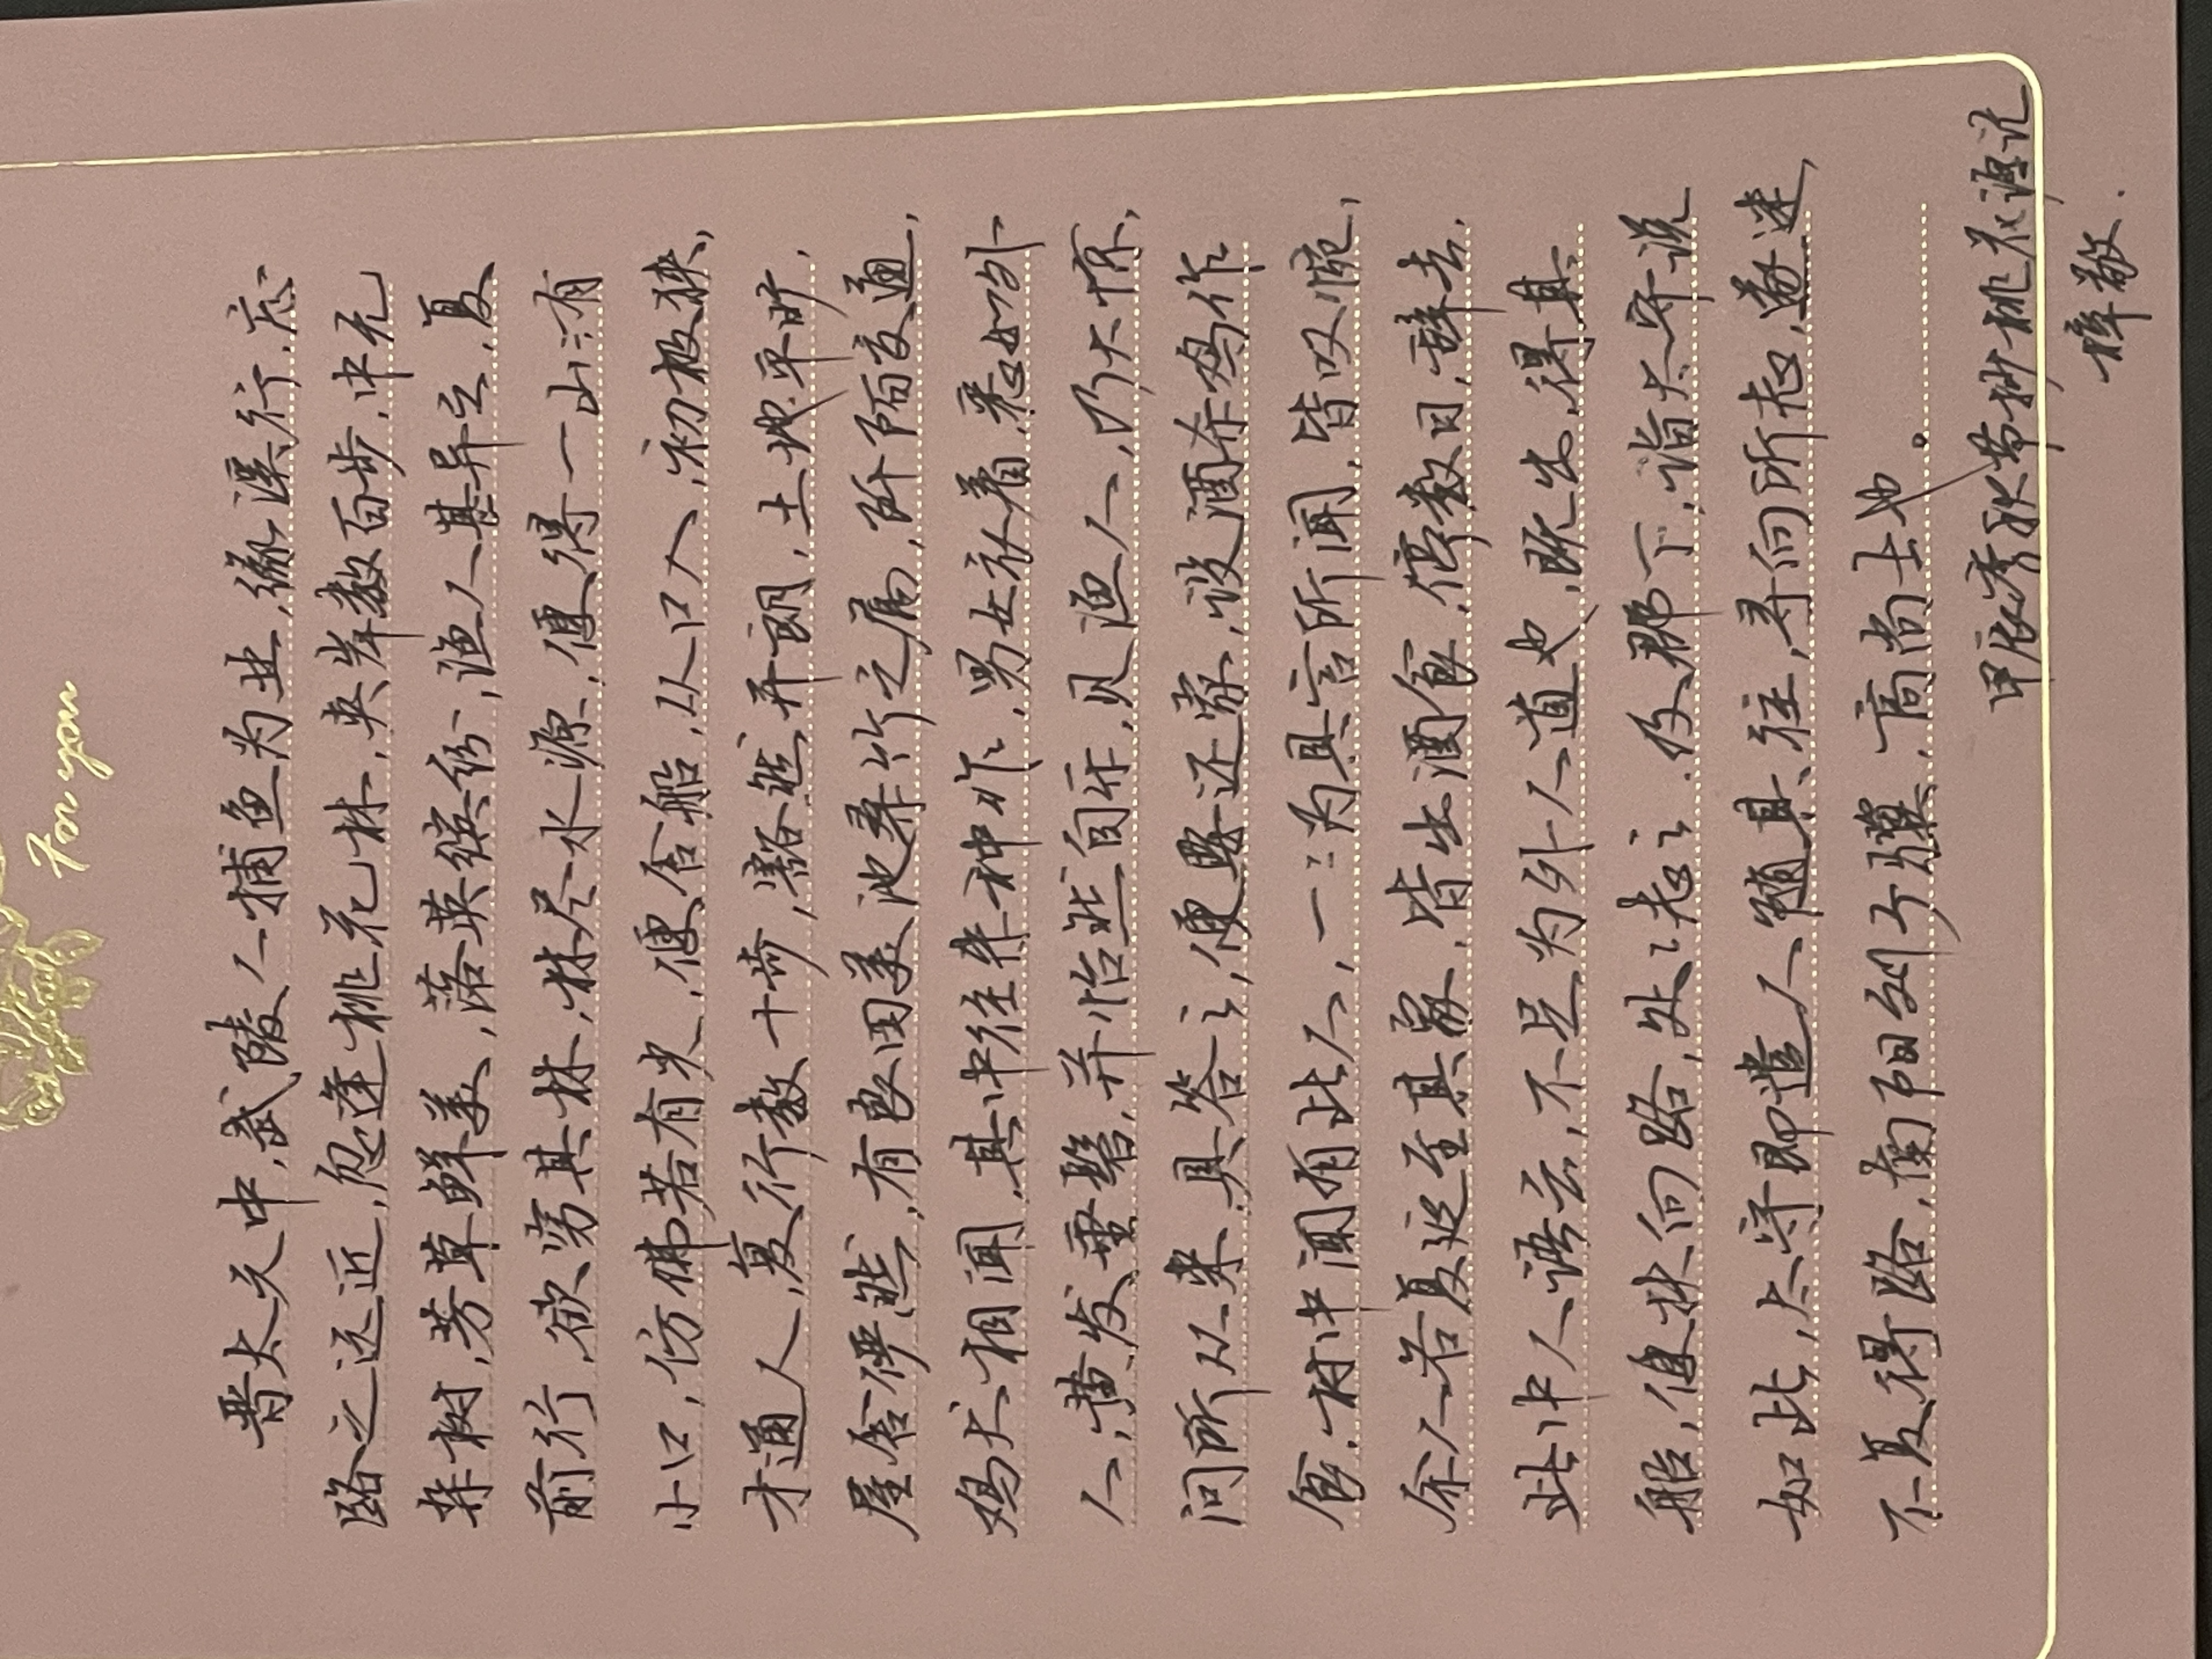 For you
晋太元中,武陵人捕鱼为业,缘溪行,忘
路之远近,忽逢桃花林,夹岸数百步,中无
杂树,芳草鲜美,落英缤纷,渔人甚异之,复
前行,欲穷其林,林尽水源,便得一山::有
小口,仿佛若有光,便舍船,从口入,初极狭,
才通人,复行数十步,豁然开朗,土地平旷,
屋舍俨然,有良田美池桑竹之属,阡陌交通,
鸡犬相闻,其中往来种作,男女衣着,悉如外
人,黄发垂髫,并怡然自乐,见渔人,乃大惊,
问所从来,具答之,便要还家,设酒杀鸡作
食,村中闻有此人,一::为具言所闻,皆叹惋,
余人各复延至其家,皆出酒食,停数日,辞去,
此中人语云,不足为外人道也,既出,得其
船,便扶向路,处:志之,及郡下,诣太守说
如此,太守即遣人随其往,寻向所志,遂迷,
不复得路,南阳刘子骥,高尚士也。
甲辰季秋节抄桃花源记
梓敬.